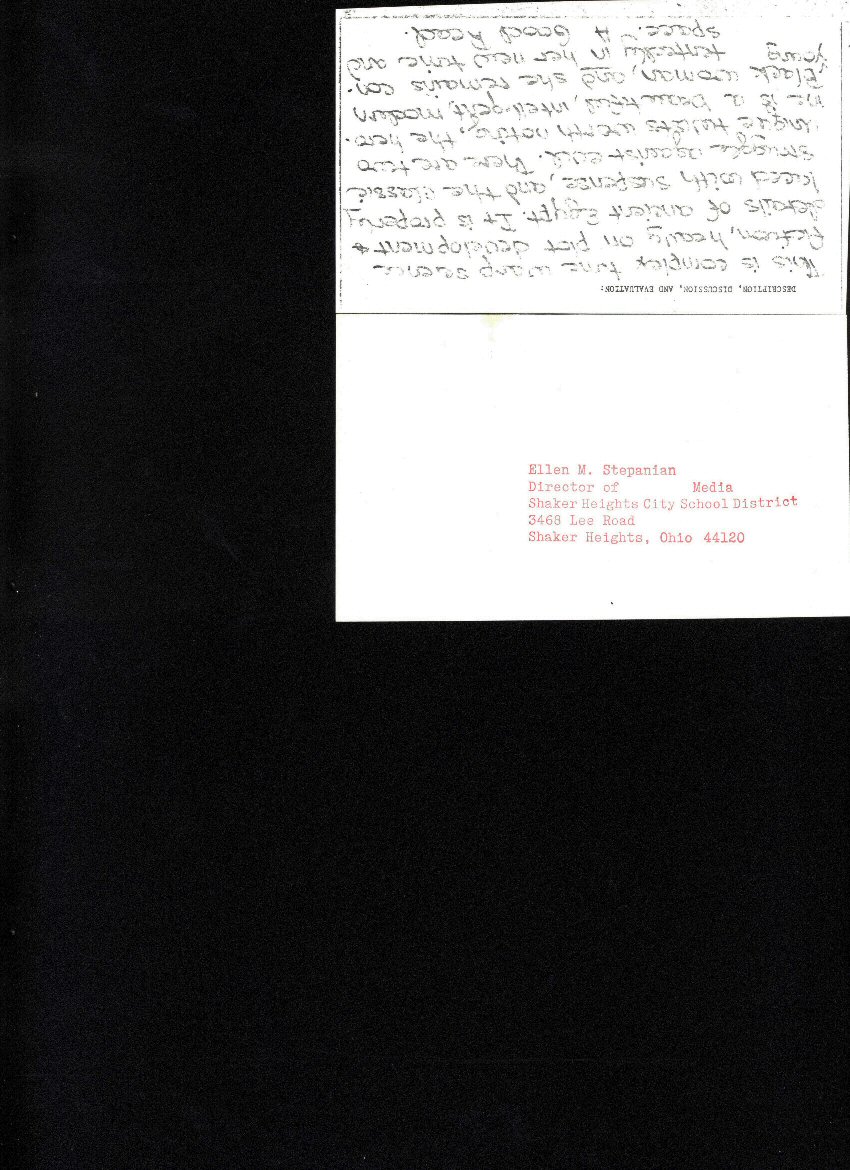 DESCRIPTION, DISCUSSION, AND EVALUATION:
This is complex time warp science
fiction, heavy on plot development &
details of ancient Egypt. It is properly
laced with suspense, and the classic
struggle against evil. There are two
unique twists worth noting, the hero-
ine is a beautiful, intelligent, modern
"Black woman, and she remains con-
young tentedly in her new time and
space." A Good Read.
Ellen M. Stepanian
Director of Media
Shaker Heights City School District
3468 Lee Road
Shaker Heights, Ohio 44120